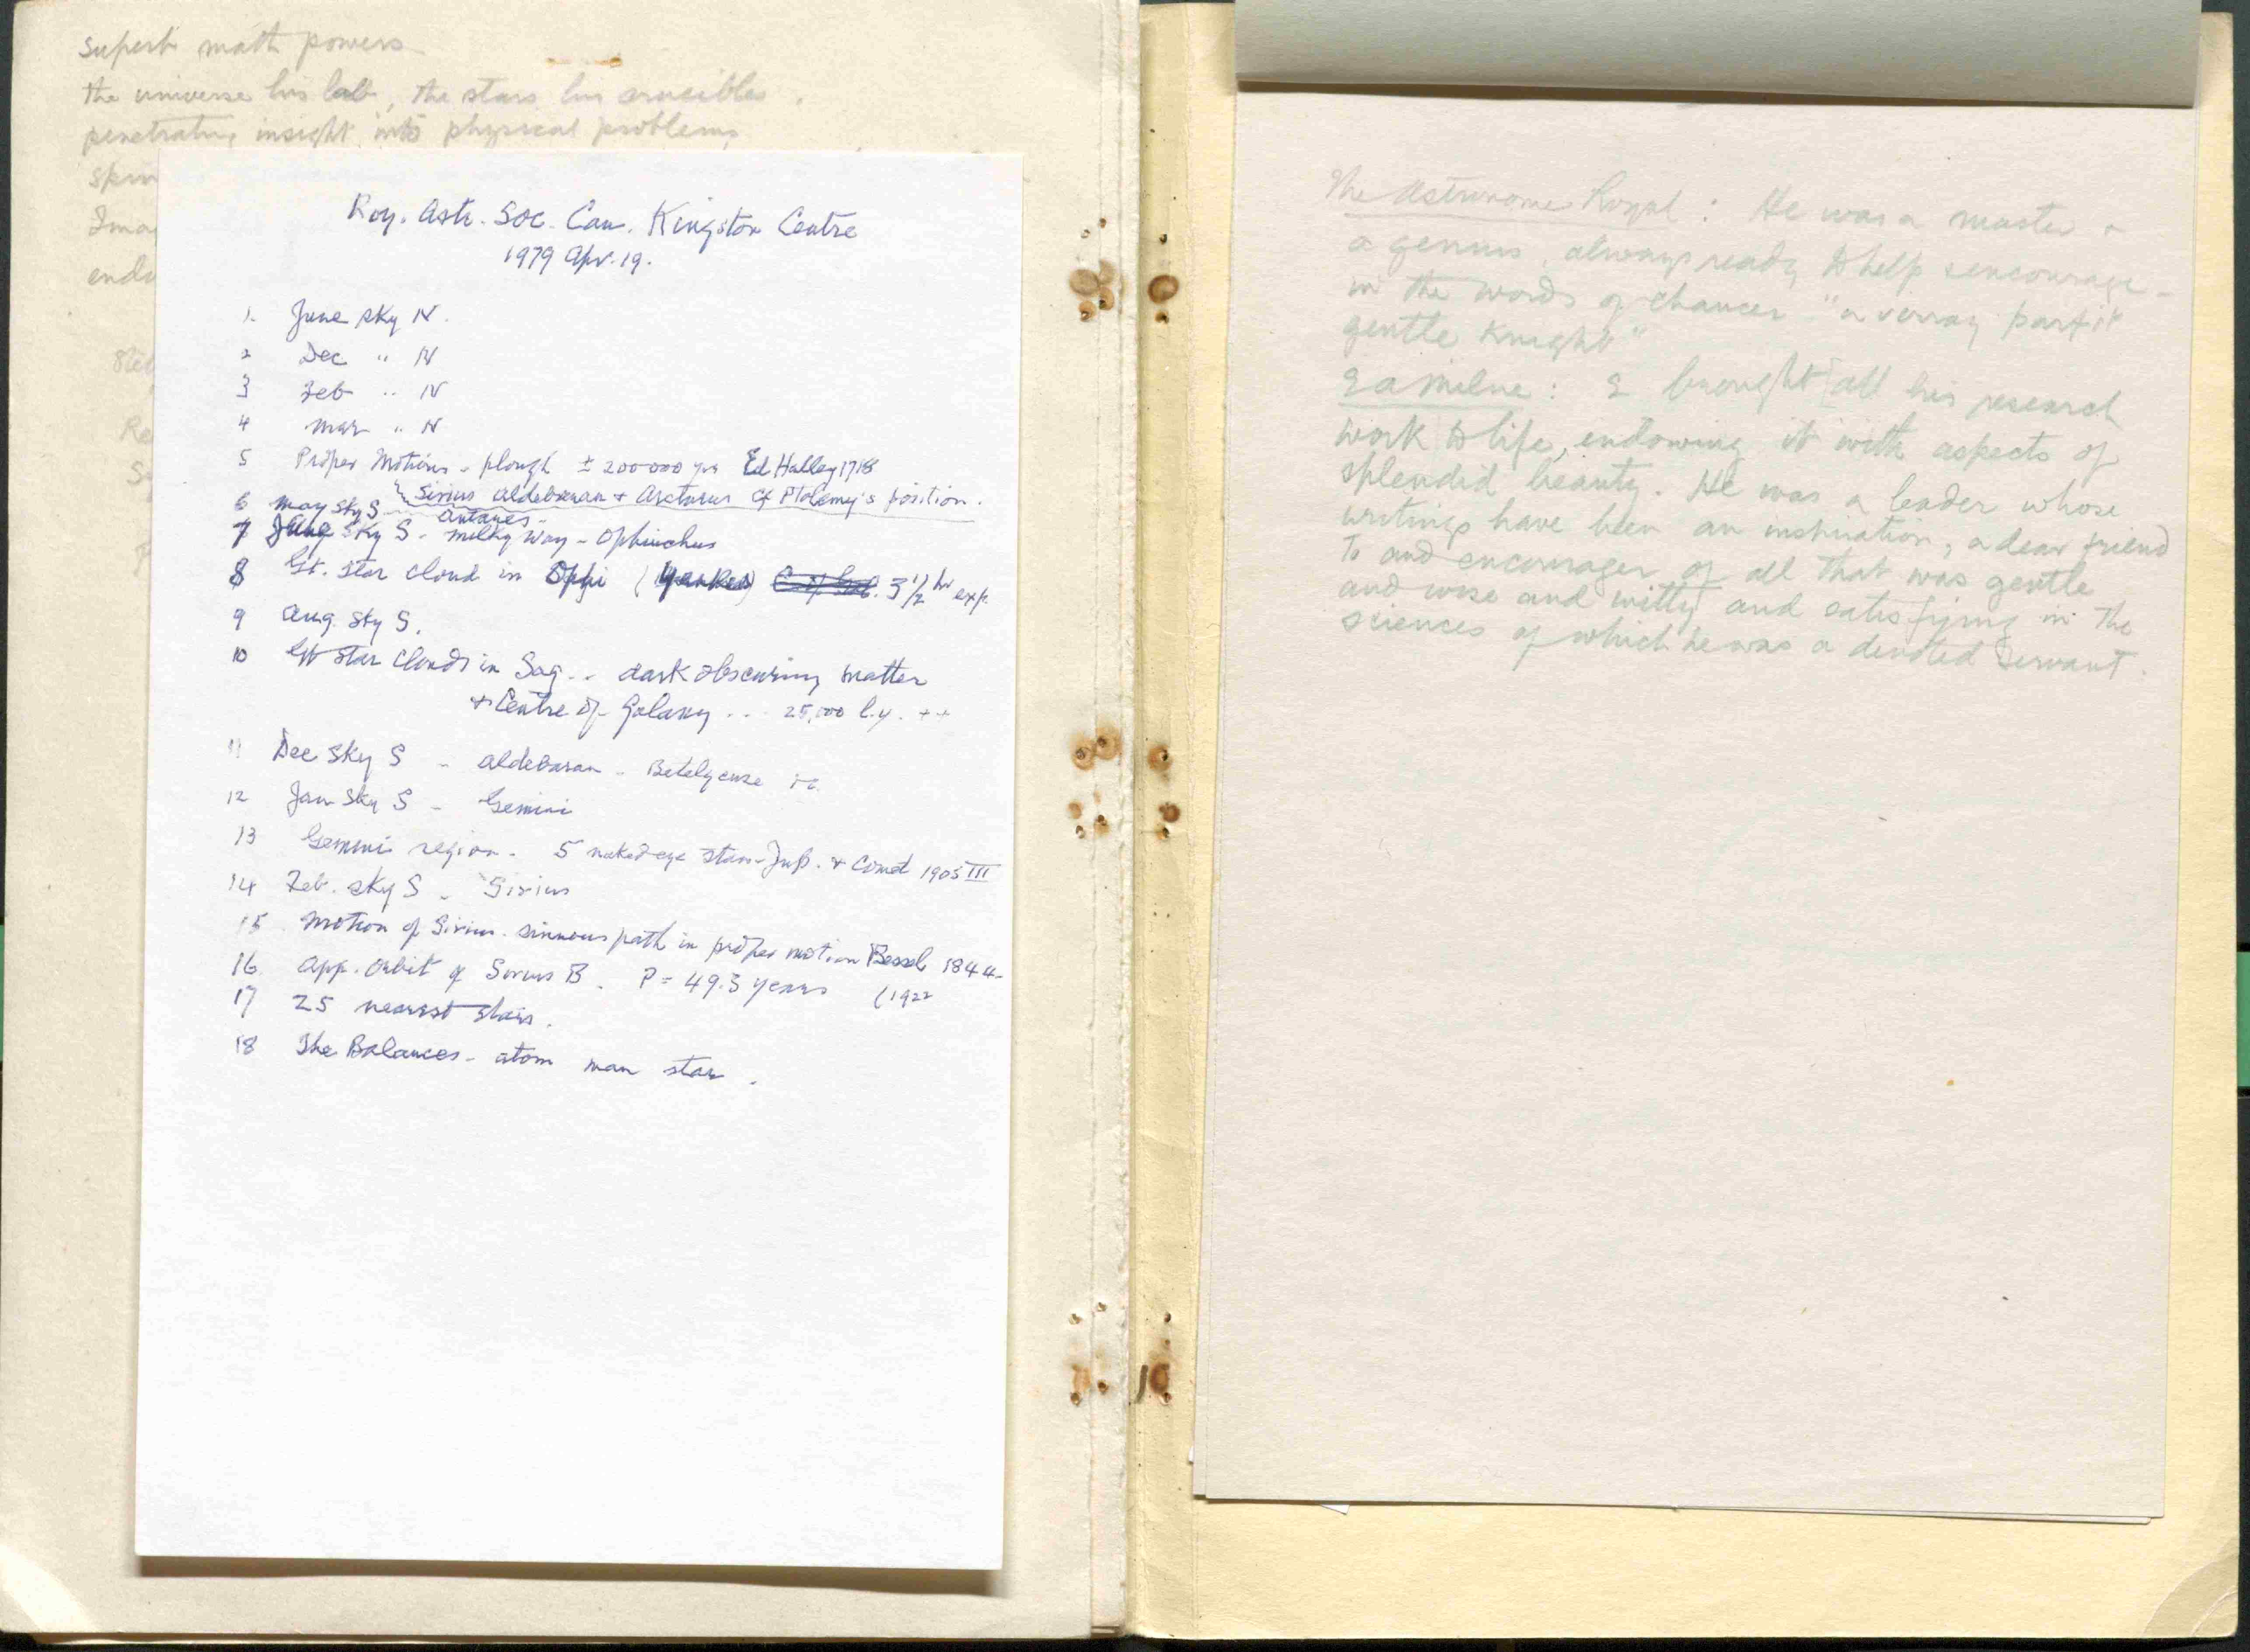 Superb math powers
the universe his lab, the stars his crucibles.
penetrating insight into physical problems
Ima
endo
Re
Roy. Astr. Soc. Can. Kingston Centre
1979 Apr. 19.
1. June sky N.
2 Dec " N
3 Feb " N
4 Mar " N
5 Proper Motions - plough ± 200000 yrs Ed Halley 1718
Sirius Aldebaran + Arcturus cf Ptolemy's position.
6 May Sky S - Antares -
7 June Sky S - Milky Way - Ophiuchus
8 Gt. Star Cloud in Ophi (Yerkes) 3 1/2 hr exp.
9 Aug. Sky S.
10 Gt Star Clouds in Sag. .. dark obscuring matter
+ Centre of Galaxy ... 25,000 l.y. ++
11 Dec Sky S - Aldebaran - Betelgeuse
12 Jan Sky S - Gemini
13 Gemini region. 5 naked eye stars - Jup. + Comet 1905 III
14 Feb. sky S - Sirius
15 Motion of Sirius. sinuous path in proper motion Bessel 1844
16 App. Orbit of Sirius B. P = 49.3 years (1922
17 25 nearest stars.
18 The Balances - atom man star.
The Astronomer Royal : He was a master +
a genius, always ready to help & encourage -
in the words of Chaucer "a verray parfit
gentle Knight"
E A Milne : E brought all his research
work to life, endowing it with aspects of
splendid beauty. He was a leader whose
writings have been an inspiration, a dear friend
to and encourager of all that was gentle
and wise and witty and satisfying in the
sciences of which he was a devoted servant.